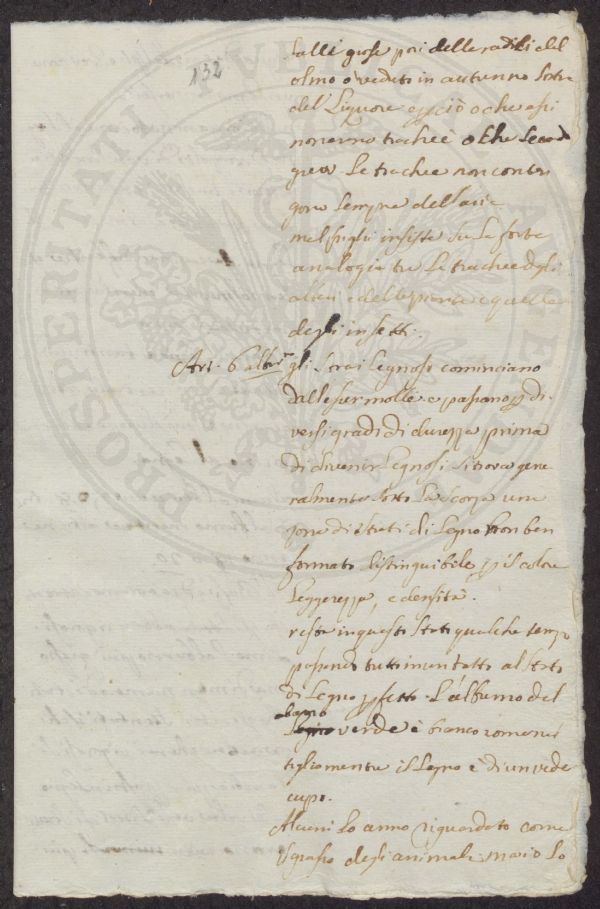 132
dalli grose pori delle radici del
olmo o veduti in autunno sortire
del Liquore e p ciò o che essi
non erano trachee o che
le trachee non conten
gono sempre dell'aria
malpighi insiste su la forte
analogia tra le trachee degli
alberi e delle piante e quelle
degli insetti.
Art. 6 gli strai Legnosi cominciano
dall'esser molle e passano p di
versi gradi di durezza prima
di divenir Legnosi si trova gene
ralmente sotto la scorza una
zona di strati di Legno non ben
formato distinguibile p il colore
Leggerezza, e densità.
resta in questi stati qualche tempo
passando tutti in un tatto al stato
di Legno pfetto. L'alburno del
ebano
verde è bianco
il Legno è di un verde
cupo.
Alcuni lo anno riguardato come
il graso degli animali ma io lo